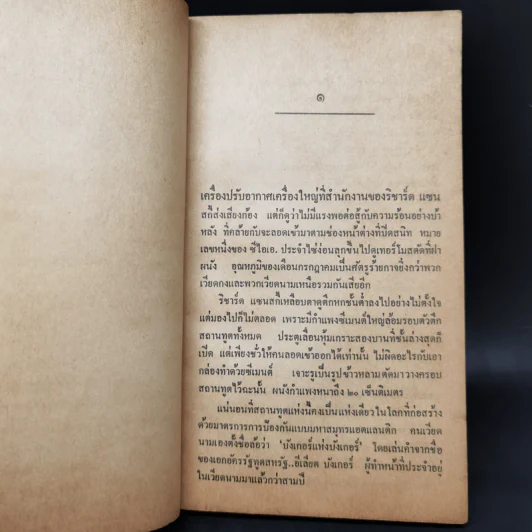 ๑
เครื่องปรับอากาศเครื่องใหญ่ที่สำนักงานของริชาร์ด แซน
สกีส่งเสียงก้อง แต่ก็ดูว่าไม่มีแรงพอต่อสู้กับความร้อนอย่างบ้า
หลัง ที่คล้ายกับจะลอดเข้ามาตามช่องหน้าต่างที่ปิดสนิท หมาย
เลขหนึ่งของ ซีไอเอ. ประจำไซ่ง่อนลุกขึ้นไปดูเทอร์โมสตัดที่ฝา
ผนัง อุณหภูมิของเดือนกรกฎาคมเป็นศัตรูร้ายกาจยิ่งกว่าพวก
เวียดกงและพวกเวียดนามเหนือรวมกันเสียอีก
ริชาร์ด แซนสกีเหลือบตาดูตึกหกชั้นต่ำลงไปอย่างไม่ตั้งใจ
แต่มองไปก็ไม่ตลอด เพราะมีกำแพงซีเมนต์ใหญ่ล้อมรอบตัวตึก
สถานทูตทั้งหมด ประตูเลื่อนหุ้มเกราะสองบานที่ชั้นล่างสุดก็
เปิด แต่เพียงชั่วให้คนลอดเข้าออกได้เท่านั้น ไม่ผิดอะไรกับเอา
กล่องทำด้วยซีเมนต์ เจาะรูเป็นรูปข้าวหลามตัดมาวางครอบ
สถานทูตไว้ฉะนั้น ผนังกำแพงหนาถึง ๒๐ เซ็นติเมตร
แน่นอนที่สถานทูตแห่งนี้คงเป็นแห่งเดียวในโลกที่ก่อสร้าง
ด้วยมาตรการการป้องกันแบบมหาสมุทรแอตแลนติก คนเวียด
นามเองตั้งชื่อล้อว่า 'บังเกอร์แห่งบังเกอร์' โดยเล่นคำจากชื่อ
ของเอกอัครรัฐทูตสหรัฐ..อีเลียต บังเกอร์ ผู้ทำหน้าที่ประจำอยู่
ในเวียดนามมาแล้วกว่าสามปี